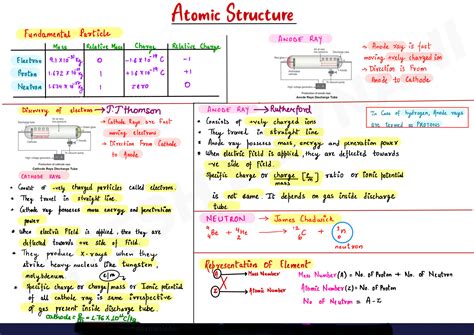 Atomic Structure
Fundamental Particle
Mass Relative Mass Charge Relative Charge
Electron 9.1 X 10⁻³¹ kg 0 -1.6 X 10⁻¹⁹ C -1
Proton 1.672 X 10⁻²⁷ kg 1 +1.6 X 10⁻¹⁹ C +1
Neutron 1 zero 0
ANODE RAY
Anode Rays Discharge Tube
→ Anode ray is fast
moving +vely charged ion
→ Direction is from
Anode to Cathode
Discovery of electron → J.J Thomson
Cathode Rays Discharge Tube
→ Cathode Rays are fast
moving electrons
→ Direction From Cathode
to Anode.
CATHODE RAYS
• Consist of -vely charged particles called electrons.
• They travel in straight line.
• Cathode ray possesses mass energy and penetration
power
• When Electric Field is applied, then they are
deflected towards +ve side of field.
• They produce X-rays when they
strike heavy nucleus like tungsten,
molybdenum
• Specific charge or charge/mass or Ionic potential
of all cathode ray is same irrespective
of gas present inside discharge tube.
ANODE RAY → Rutherford
• Consists of +vely charged ions
• They travel in straight line
• Anode ray possesses mass, energy and penetration power
• When electric field is applied, they are deflected towards
-ve side of field.
• Specific charge or charge/mass [e/m] ratio or ionic potential
is not same. It depends on gas inside discharge
tube
In case of hydrogen, Anode rays
are termed as PROTONS
NEUTRON → James Chadwick
neutron
Representation of Element
Mass Number
Atomic Number
Mass Number(A) = No. of Proton + No. of Neutron
Atomic Number (Z) = No. of Proton
No of Neutron = A-Z